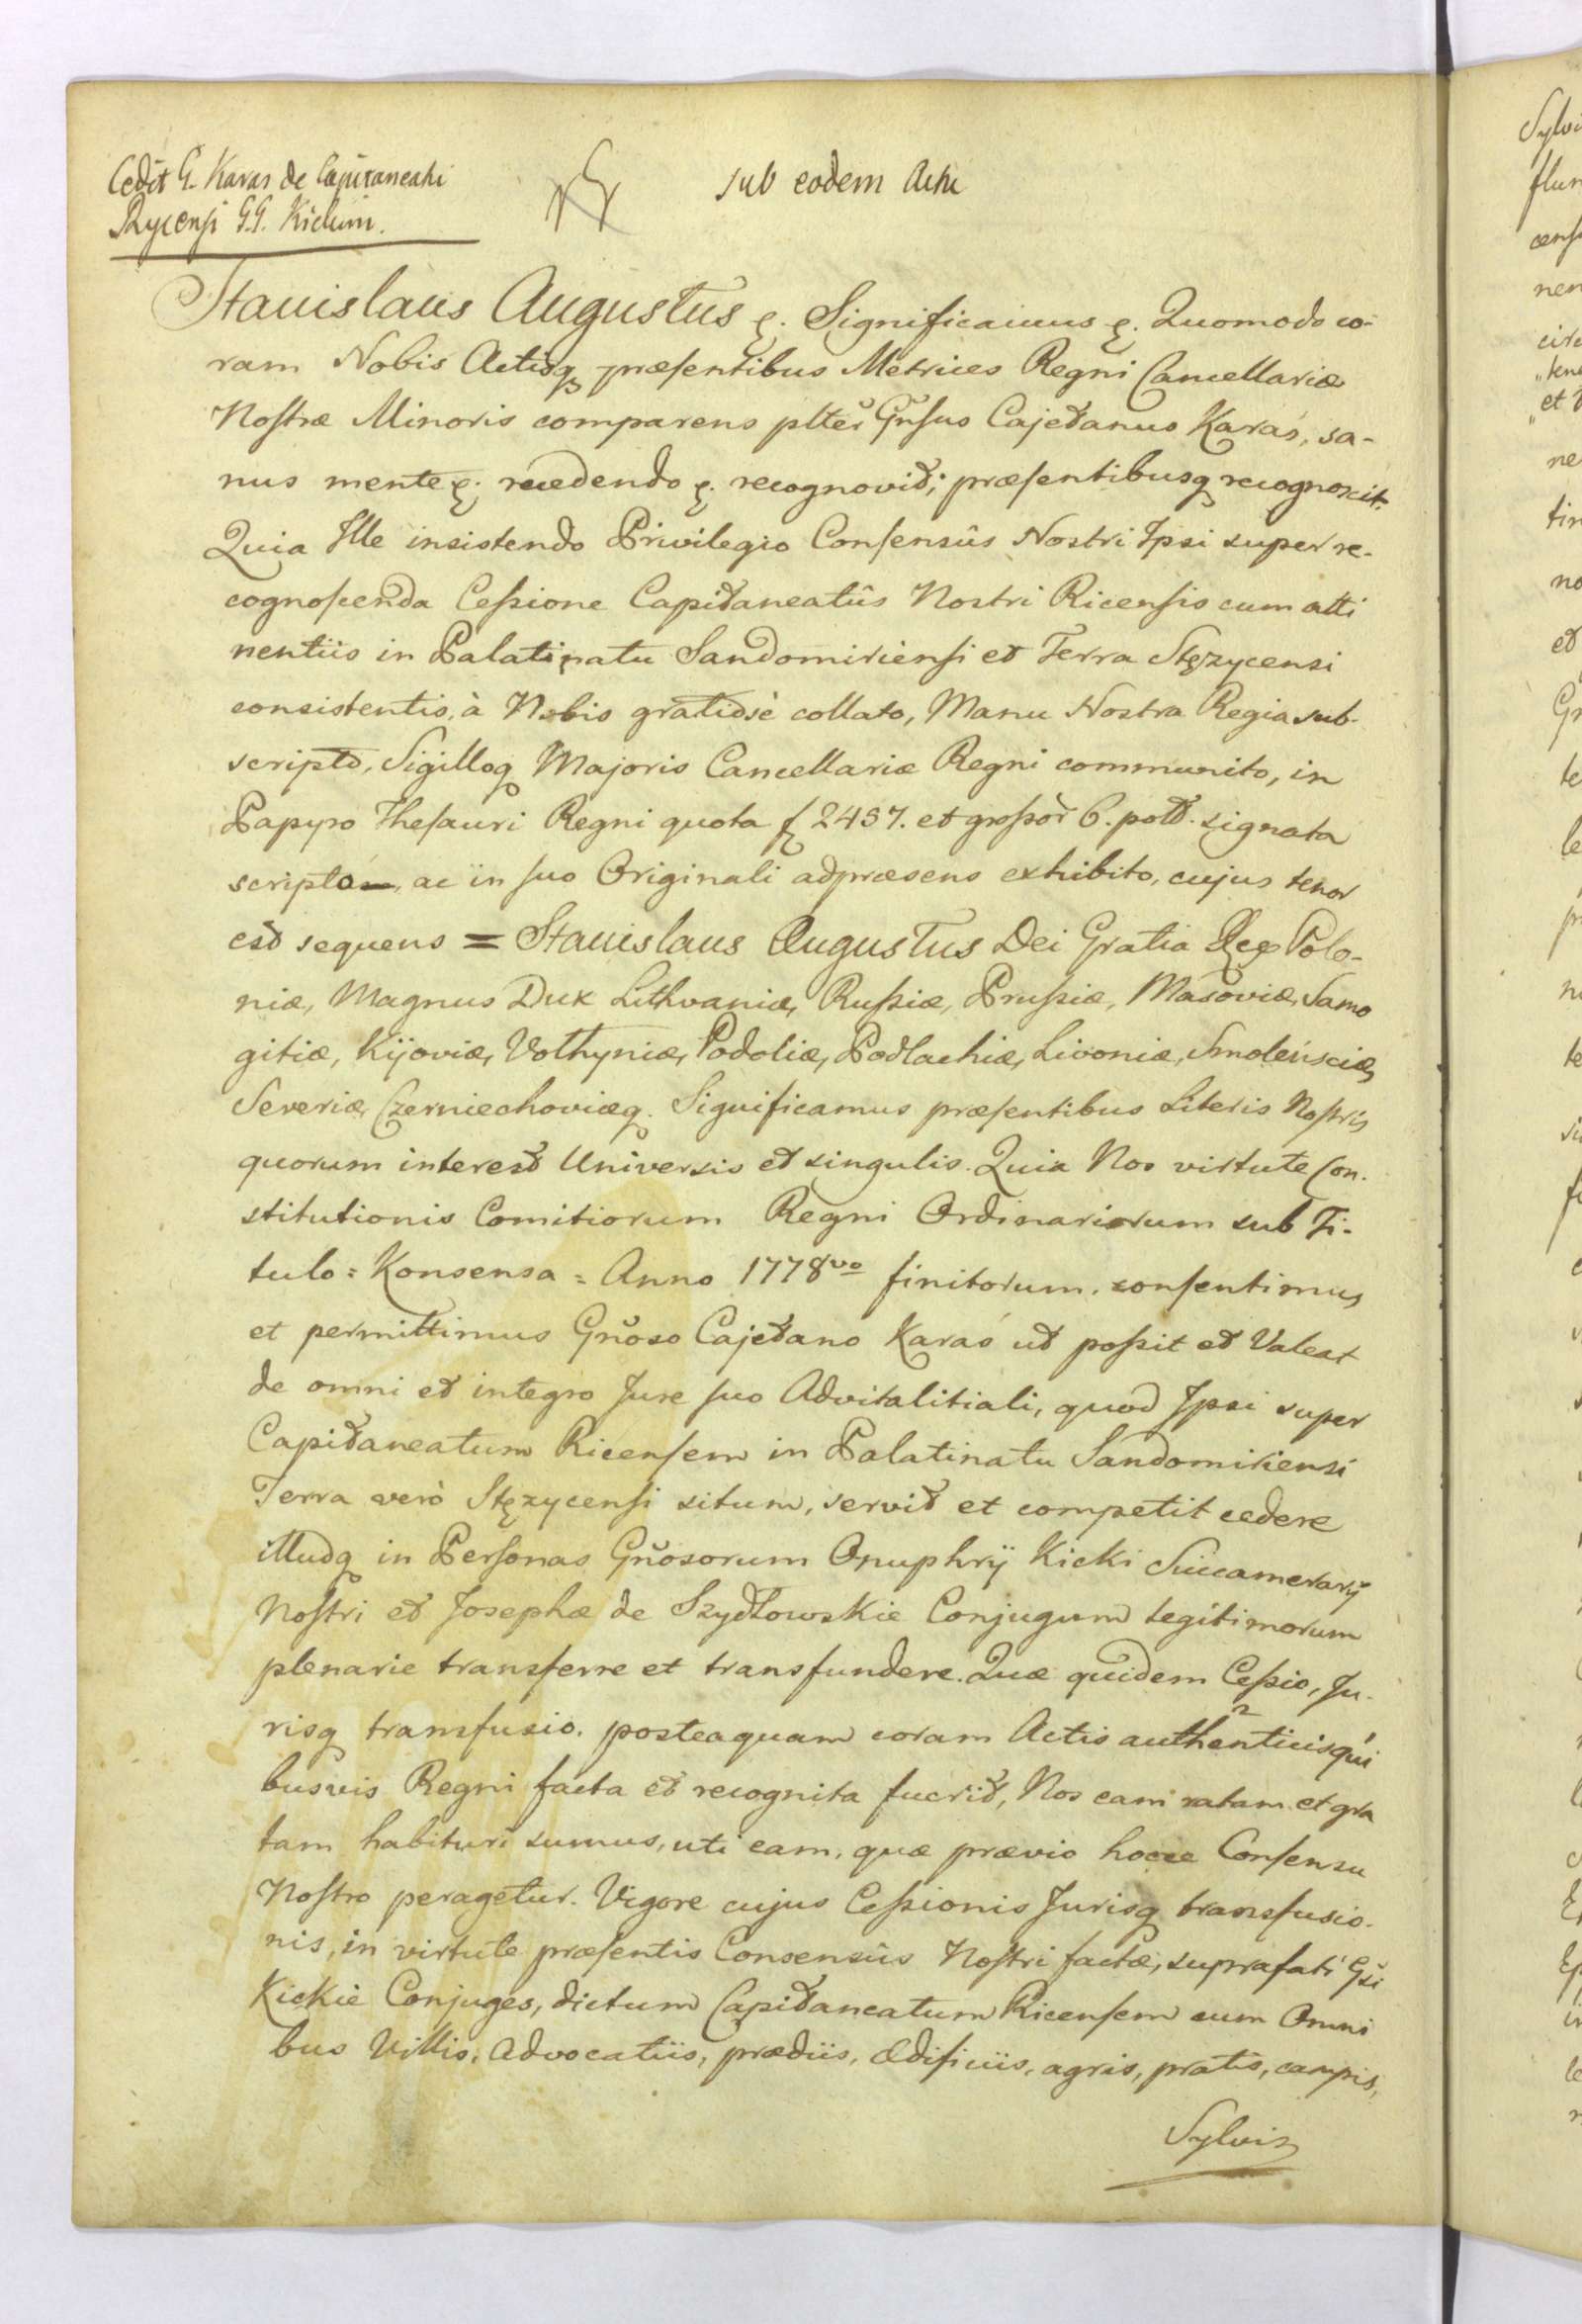 Cedit G. Karas de Capitaneatu
Rycensi G.G. Kickim.
sub eodem Actu
Stanislaus Augustus &. Significamus &. Quomodo co-
ram Nobis Actisq præsentibus Metrices Regni Cancellariæ
Nostræ Minoris comparens plter Gnsus Cajetanus Karaś, sa-
nus mente &. recedendo &. recognovit; præsentibusq recognoscit.
Quia Ille insistendo Privilegio Consensûs Nostri Ipsi super re-
cognoscenda Cessione Capitaneatûs Nostri Ricensis cum atti
nentiis in Palatinatu Sandomiriensi et Terra Stęzycensi
consistentis, à Nobis gratiosè collato, Manu Nostra Regia sub-
scripto, Sigilloq Majoris Cancellariæ Regni communito, in
Papyro Thesauri Regni quota f 2457. et grossor 6. polł. signata
scripto, ac in suo Originali adpræsens exhibito, cujus tenor
est sequens = Stanislaus Augustus Dei Gratia Rex Polo-
niæ, Magnus Dux Lithvaniæ, Russiæ, Prussiæ, Masoviæ, Samo
gitiæ, Kijoviæ, Volhyniæ, Podoliæ, Podlachiæ, Livoniæ, Smolensciæ,
Severiæ, Czerniechoviæq. Significamus præsentibus Literis Nostris
quorum interest Universis et singulis. Quia Nos virtute Con-
stitutionis Comitiorum Regni Ordinariorum sub Ti-
tulo = Konsensa = Anno 1778vo finitorum, consentimus
et permittimus Gnoso Cajetano Karaś ut possit et Valeat
de omni et integro Jure suo Advitalitiali, quod Ipsi super
Capitaneatum Ricensem in Palatinatu Sandomiriensi
Terra verò Stęzycensi situm, servit et competit cedere
illudq in Personas Gnosorum Onuphrij Kicki Succamerarij
Nostri et Josephæ de Szydłowskie Conjugum legitimorum
plenarie transferre et transfundere. Quæ quidem Cessio, Ju-
risq transfusio, posteaquam coram Actis authenticis qui
busvis Regni facta et recognita fuerit, Nos eam ratam et gra
tam habituri sumus, uti eam, quæ prævio hocce Consensu
Nostro peragetur. Vigore cujus Cessionis Jurisq transfusio-
nis, in virtute præsentis Consensûs Nostri factæ, suprafati Gsi
Kickie Conjuges, dictum Capitaneatum Ricensem cum Omni
bus Villis, Advocatiis, prædiis, ædificiis, agris, pratis, campis,
Sylvis